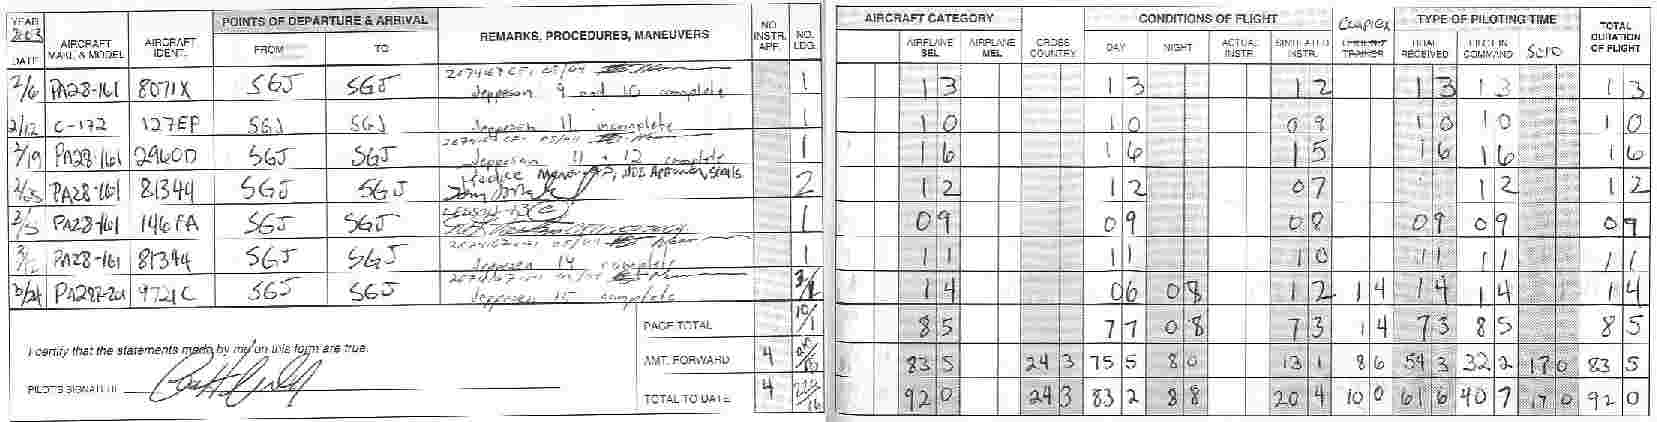 YEAR 2003 POINTS OF DEPARTURE & ARRIVAL NO. INSTR. APP. NO. LDG. AIRCRAFT CATEGORY CONDITIONS OF FLIGHT Complex TYPE OF PILOTING TIME TOTAL DURATION OF FLIGHT
DATE AIRCRAFT MAKE & MODEL AIRCRAFT IDENT. FROM TO REMARKS, PROCEDURES, MANEUVERS AIRPLANE SEL AIRPLANE MEL CROSS COUNTRY DAY NIGHT ACTUAL INSTR. SIMULATED INSTR. TRAINER DUAL RECEIVED PILOT IN COMMAND Solo
2/6 PA28-161 8071X SGJ SGJ Jeppesen 9 and 10 complete 1 1 3 1 3 1 2 1 3 1 3 1 3
2/12 C-172 127EP SGJ SGJ Jeppesen 11 incomplete 1 1 0 1 0 0 9 1 0 1 0 1 0
2/19 PA28-161 2960D SGJ SGJ Jeppesen 11 + 12 complete 1 1 6 1 6 1 5 1 6 1 6 1 6
2/25 PA28-161 81344 SGJ SGJ 2 1 2 1 2 0 7 1 2 1 2
3/5 PA28-161 146FA SGJ SGJ 1 0 9 0 9 0 8 0 9 0 9 0 9
3/12 PA28-161 81344 SGJ SGJ Jeppesen 14 complete 1 1 1 1 1 1 0 1 1 1 1 1 1
3/24 PA28R-201 9721C SGJ SGJ Jeppesen 15 complete 3/1 1 4 0 6 0 8 1 2 1 4 1 4 1 4 1 4
I certify that the statements made by me on this form are true.
PAGE TOTAL 10/1 8 5 7 7 0 8 7 3 1 4 7 3 8 5 8 5
AMT. FORWARD 4 83 5 24 3 75 5 8 0 13 1 8 6 54 3 32 2 17 0 83 5
PILOT'S SIGNATURE
TOTAL TO DATE 4 92 0 24 3 83 2 8 8 20 4 10 0 61 6 40 7 17 0 92 0